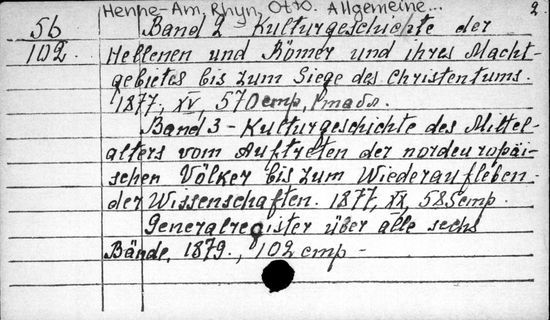 Henne-Am, Rhyn, Otto. Allgemeine... 2.
56 Band 2 Kulturgeschichte der
102. Hellenen und Römer und ihres Macht-
gebietes bis zum Siege des Christentums.
1877, XV, 570 стр, 1 табл.
Band 3 - Kulturgeschichte des Mittel-
alters vom Auftreten der nordeuropäi-
schen Völker bis zum Wiederaufleben
der Wissenschaften. 1877, XX, 585 стр.
Generalregister über alle sechs
Bände, 1879., 102 стр -